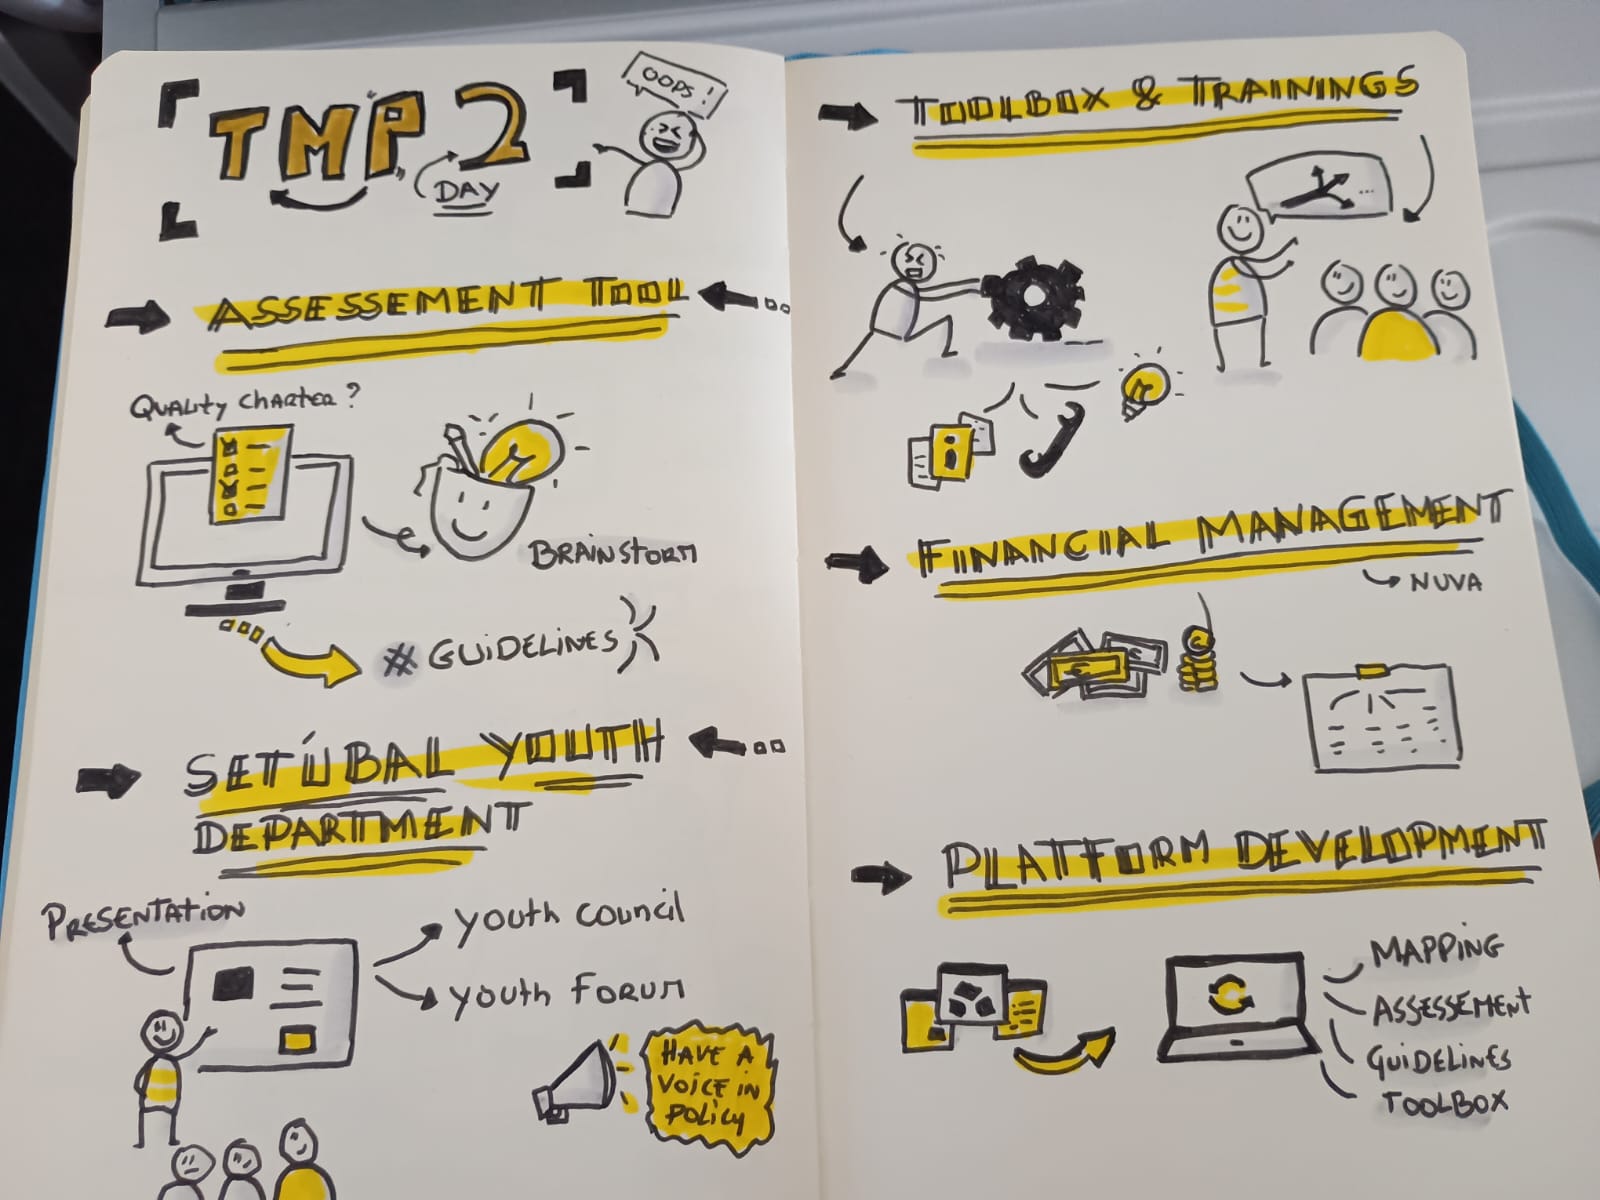 TMP 2
DAY
OOPS!
ASSESSEMENT TOOL
QUALITY CHARTER?
BRAINSTORM
# GUIDELINES
SETÚBAL YOUTH
DEPARTMENT
PRESENTATION
YOUTH COUNCIL
YOUTH FORUM
HAVE A
VOICE IN
POLICY
TOOLBOX & TRAININGS
...
i
FINANCIAL MANAGEMENT
NUVA
€
€
€
PLATFORM DEVELOPMENT
MAPPING
ASSESSEMENT
GUIDELINES
TOOLBOX